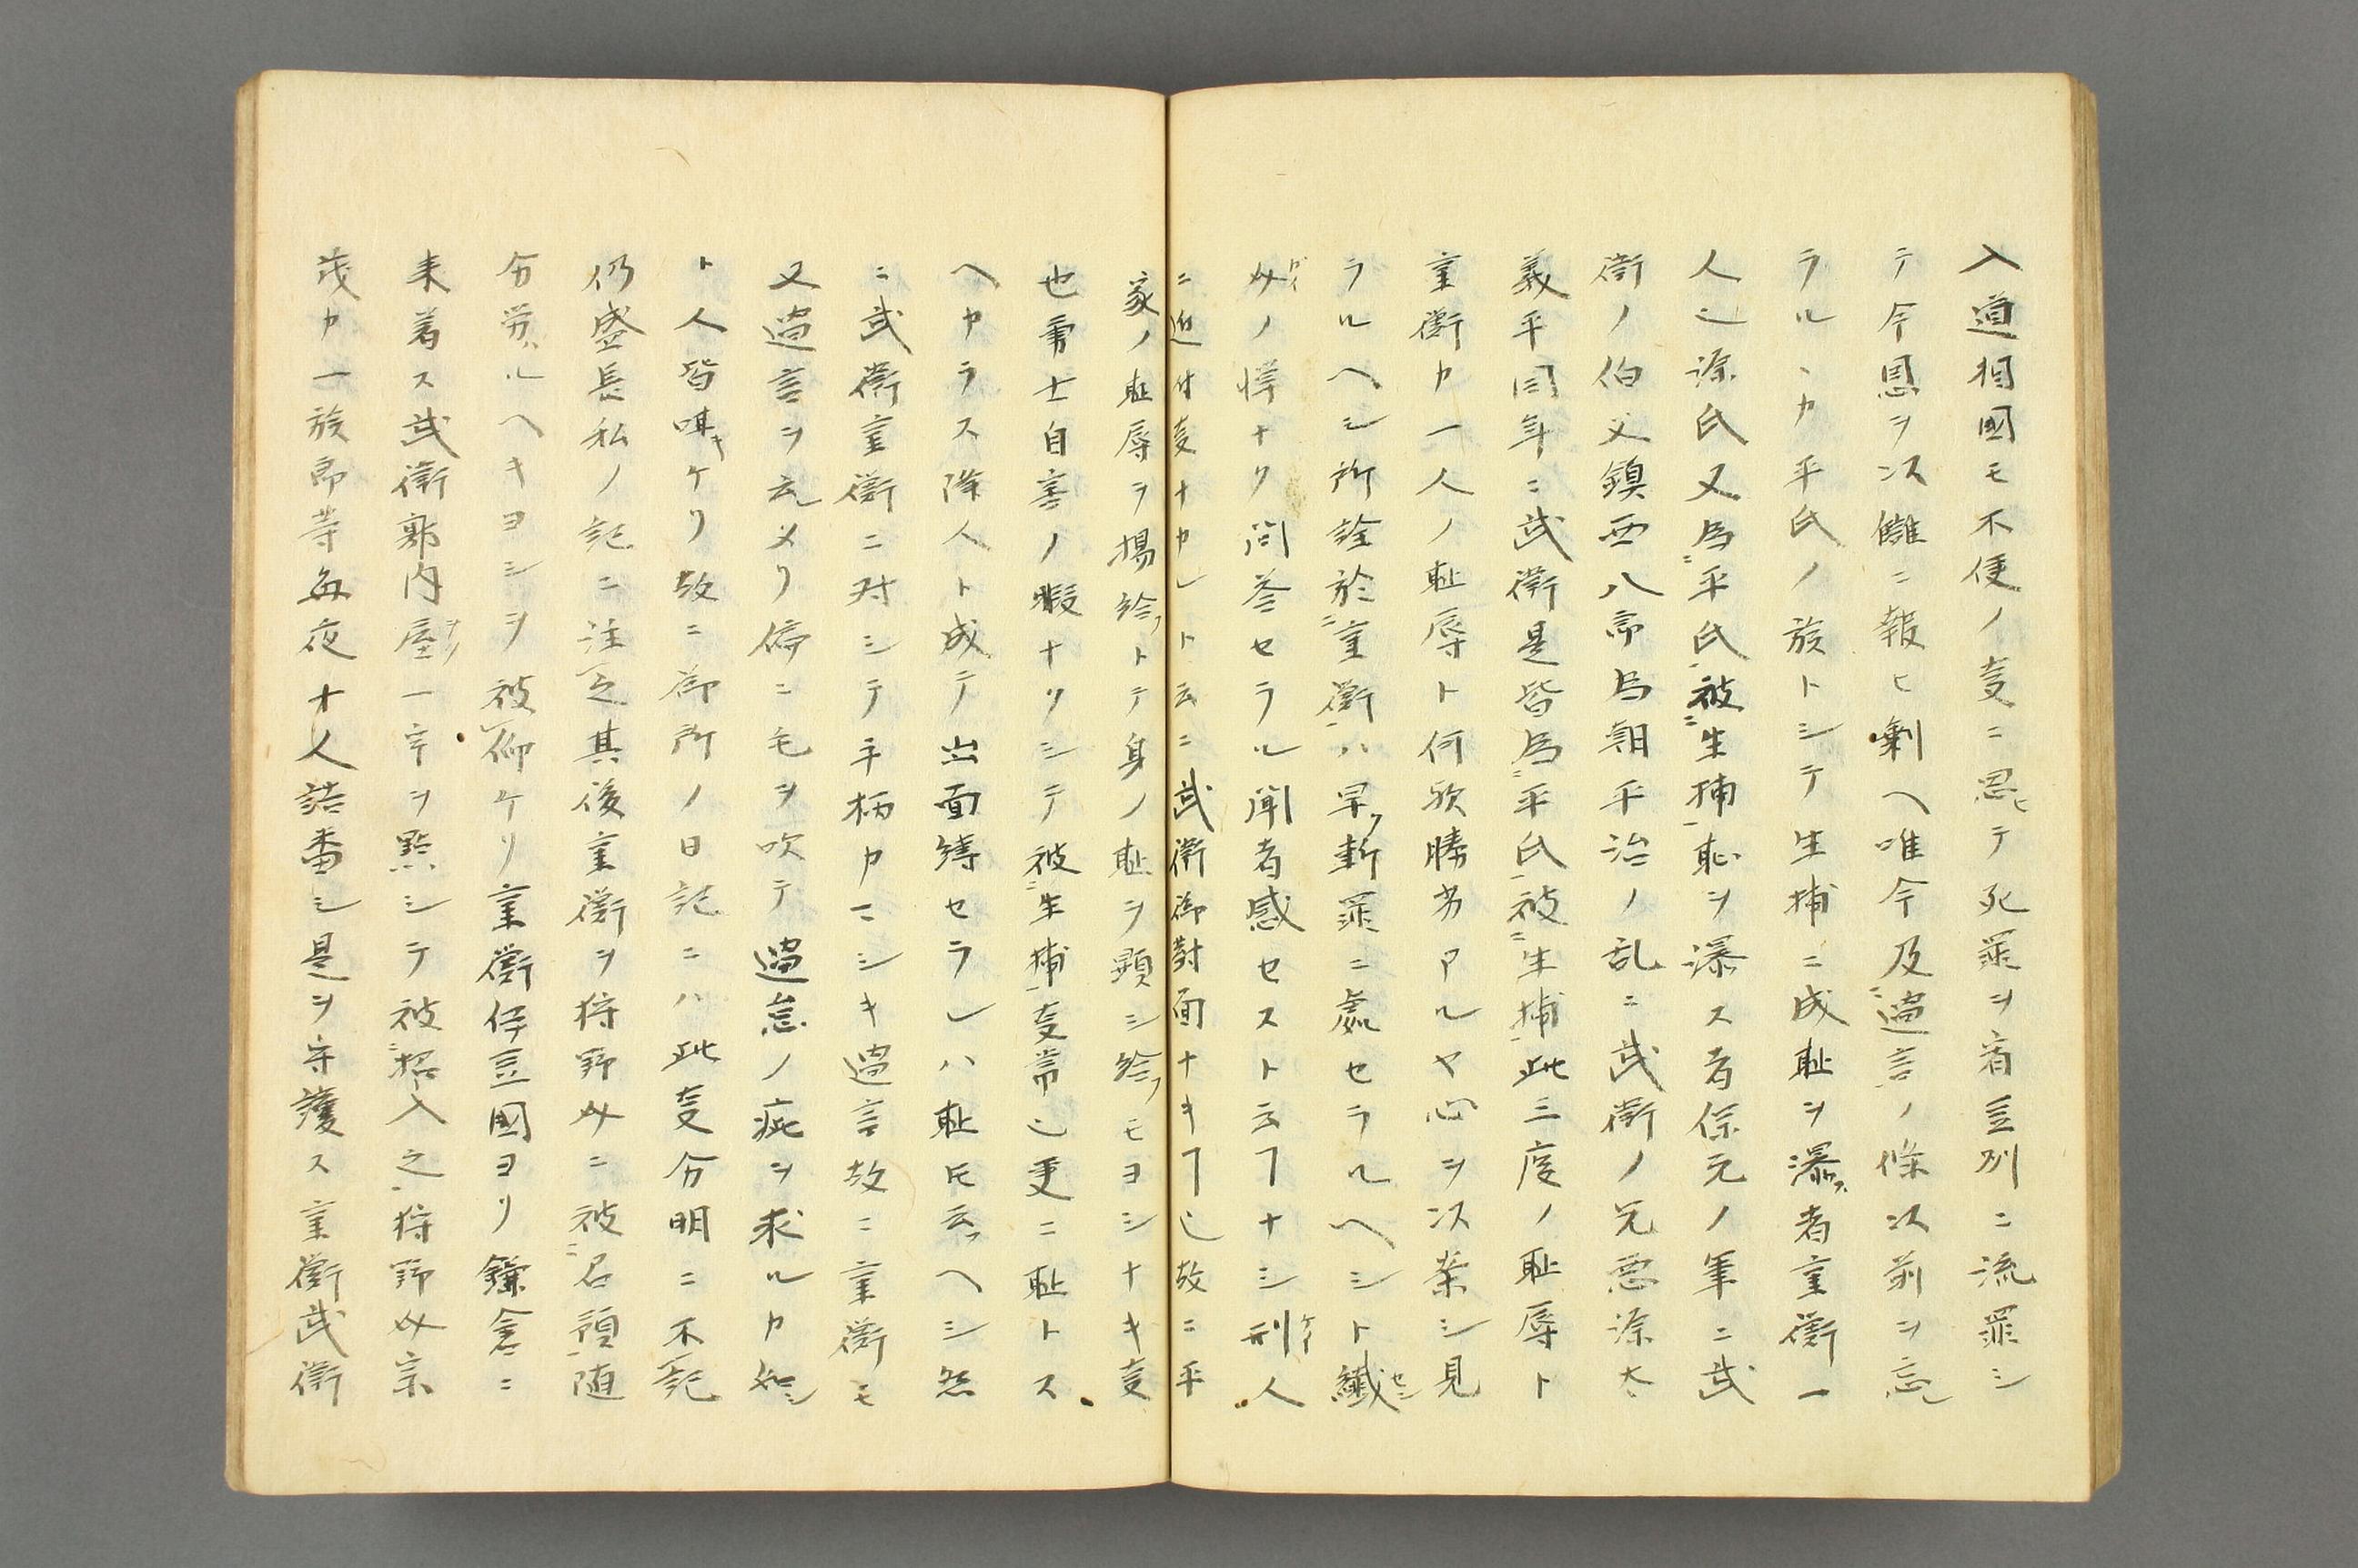 入道相國モ不便ノ㕝ニ思ヒテ死罪ヲ宥豆列ニ流罪シ
テ今恩ヲ以讎ニ報ヒ剰ヘ唯今及過言ノ條以前ヲ忘
ラルヽカ平氏ノ族トシテ生捕ニ成耻ヲ瀑ス者重衡一
人也源氏又為平氏被生捕恥ヲ瀑ス者保元ノ軍ニ武
衛ノ伯父鎮西八郎為朝平治ノ乱ニ武衛ノ兄悪源太
義平同年ニ武衛是皆為平氏被生捕此三度ノ耻辱ト
重衡カ一人ノ耻辱ト何欤勝劣アルヤ心ヲ以案シ見
ラルヘシ所詮於重衡ハ早ク斬罪ニ處セラルヘシト纎セン
芥ガイノ憚ナク問荅セラル聞者感セスト云ヿナシ刑ケイ人
ニ近付㕝ナカレト云ニ武衛御對面ナキヿ也故ニ平
家ノ耻辱ヲ揚給フトテ身ノ耻ヲ顕シ給フモヨシナキ㕝
也勇士自害ノ暇ナクシテ被生捕㕝常也更ニ耻トス
ヘカラス降人ト成テ出面縛セラレハ耻氏云フヘシ然
ニ武衛重衡ニ対シテ手柄カマシキ過言故ニ重衡モ
又過言ヲ云メリ偏ニ毛ヲ吹テ過怠ノ疵ヲ求ルカ如シ
ト人皆哢キケリ故ニ御所ノ日記ニハ此㕝分明ニ不記
仍盛長私ノ記ニ注之其後重衡ヲ狩野介ニ被召預随
分労ハルヘキヨシヲ被仰ケリ重衡伊豆國ヨリ鎌倉ニ
来着ス武衛郭内屋ヲク一宇ヲ點シテ被招入之狩野介宗
茂カ一族郎等毎夜十人詰番シ是ヲ守護ス重衡武衛